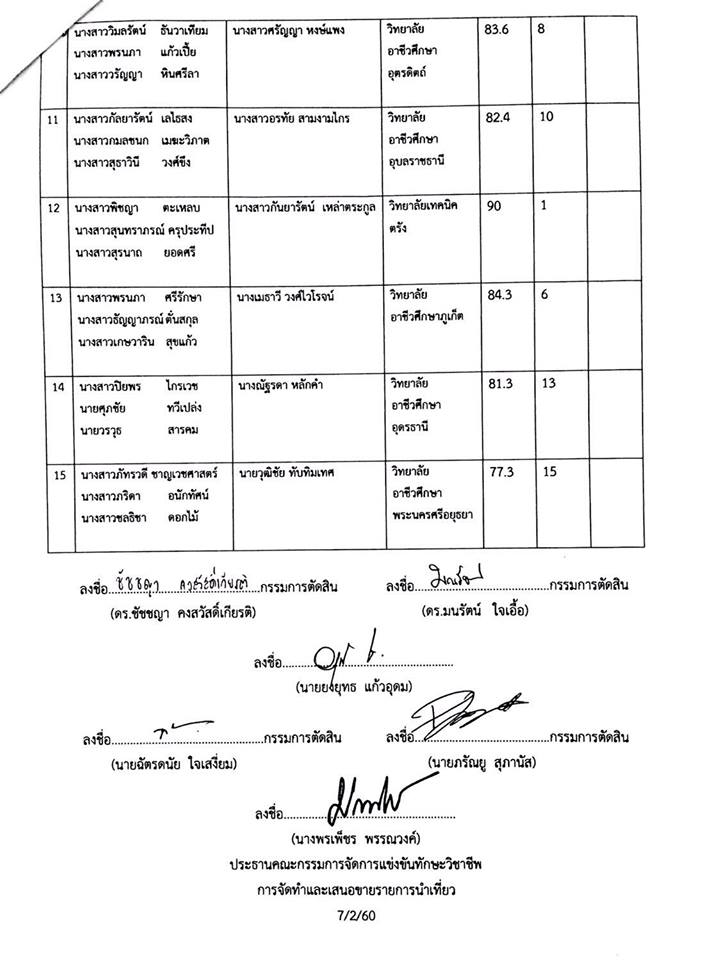 นางสาววิมลรัตน์ ธันวาเทียม นางสาวศรัญญา หงษ์แพง วิทยาลัย 83.6 8
นางสาวพรนภา แก้วเปี้ย อาชีวศึกษา
นางสาววรัญญา หินศรีลา อุตรดิตถ์
11 นางสาวกัลยารัตน์ เลไธสง นางสาวอรทัย สามงามไกร วิทยาลัย 82.4 10
นางสาวกมลชนก เมฆะวิภาต อาชีวศึกษา
นางสาวสุธาวินี วงศ์ขึง อุบลราชธานี
12 นางสาวพิชญา ตะเหลบ นางสาวกันยารัตน์ เหล่าตระกูล วิทยาลัยเทคนิค 90 1
นางสาวสุนทราภรณ์ ครุประทีป ตรัง
นางสาวสุรนาถ ยอดศรี
13 นางสาวพรนภา ศรีรักษา นางเมธาวี วงศ์ไวโรจน์ วิทยาลัย 84.3 6
นางสาวธัญญาภรณ์ ตั่นสกุล อาชีวศึกษาภูเก็ต
นางสาวเกษวาริน สุขแก้ว
14 นางสาวปิยพร ไกรเวช นางณัฐรดา หลักคำ วิทยาลัย 81.3 13
นายศุภชัย ทวีเปล่ง อาชีวศึกษา
นายวรวุธ สารคม อุดรธานี
15 นางสาวภัทรวดี ชาญเวชศาสตร์ นายวุฒิชัย ทับทิมเทศ วิทยาลัย 77.3 15
นางสาวภริดา อนักทัศน์ อาชีวศึกษา
นางสาวชลธิชา ดอกไม้ พระนครศรีอยุธยา
ลงชื่อ...กรรมการตัดสิน ลงชื่อ...กรรมการตัดสิน
(ดร.ชัชชญา คงสวัสดิ์เกียรติ) (ดร.มนรัตน์ ใจเอื้อ)
ลงชื่อ...
(นายยงยุทธ แก้วอุดม)
ลงชื่อ...กรรมการตัดสิน ลงชื่อ...กรรมการตัดสิน
(นายฉัตรดนัย ใจเสงี่ยม) (นายภรัณยู สุภานัส)
ลงชื่อ...
(นางพรเพ็ชร พรรณวงค์)
ประธานคณะกรรมการจัดการแข่งขันทักษะวิชาชีพ
การจัดทำและเสนอขายรายการนำเที่ยว
7/2/60